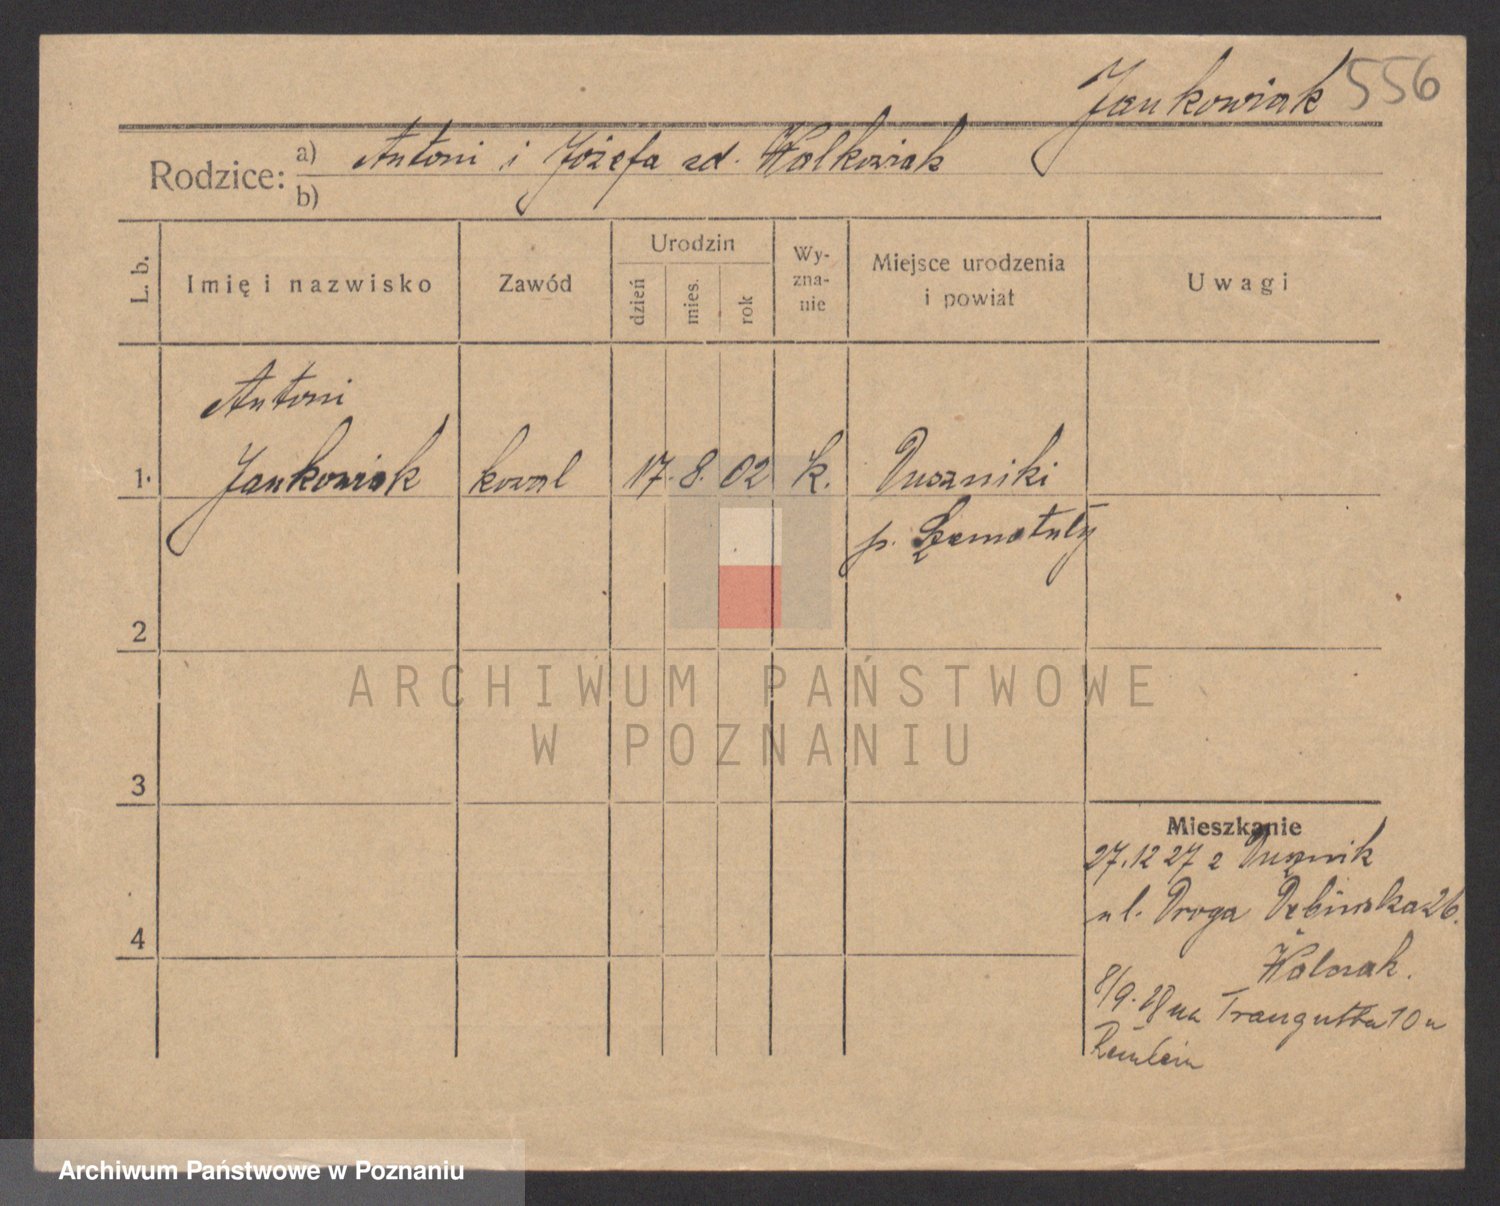 Jankowiak 556
Rodzice: a) Antoni i Józefa zd. Walkowiak
b)
L. b.
Imię i nazwisko
Zawód
Urodzin
dzień
mies.
rok
Wy-
zna-
nie
Miejsce urodzenia
i powiat
Uwagi
Antoni
1. Jankowiak kowal 17. 8. 02 k. Duszniki
p. Szamotuły
2
3
4
Mieszkanie
27.12 27 z Dusznik
ul. Droga Dębińska 26.
8/9. 28 na Traugutta 10 u
ARCHIWUM PAŃSTWOWE
W POZNANIU
Archiwum Państwowe w Poznaniu